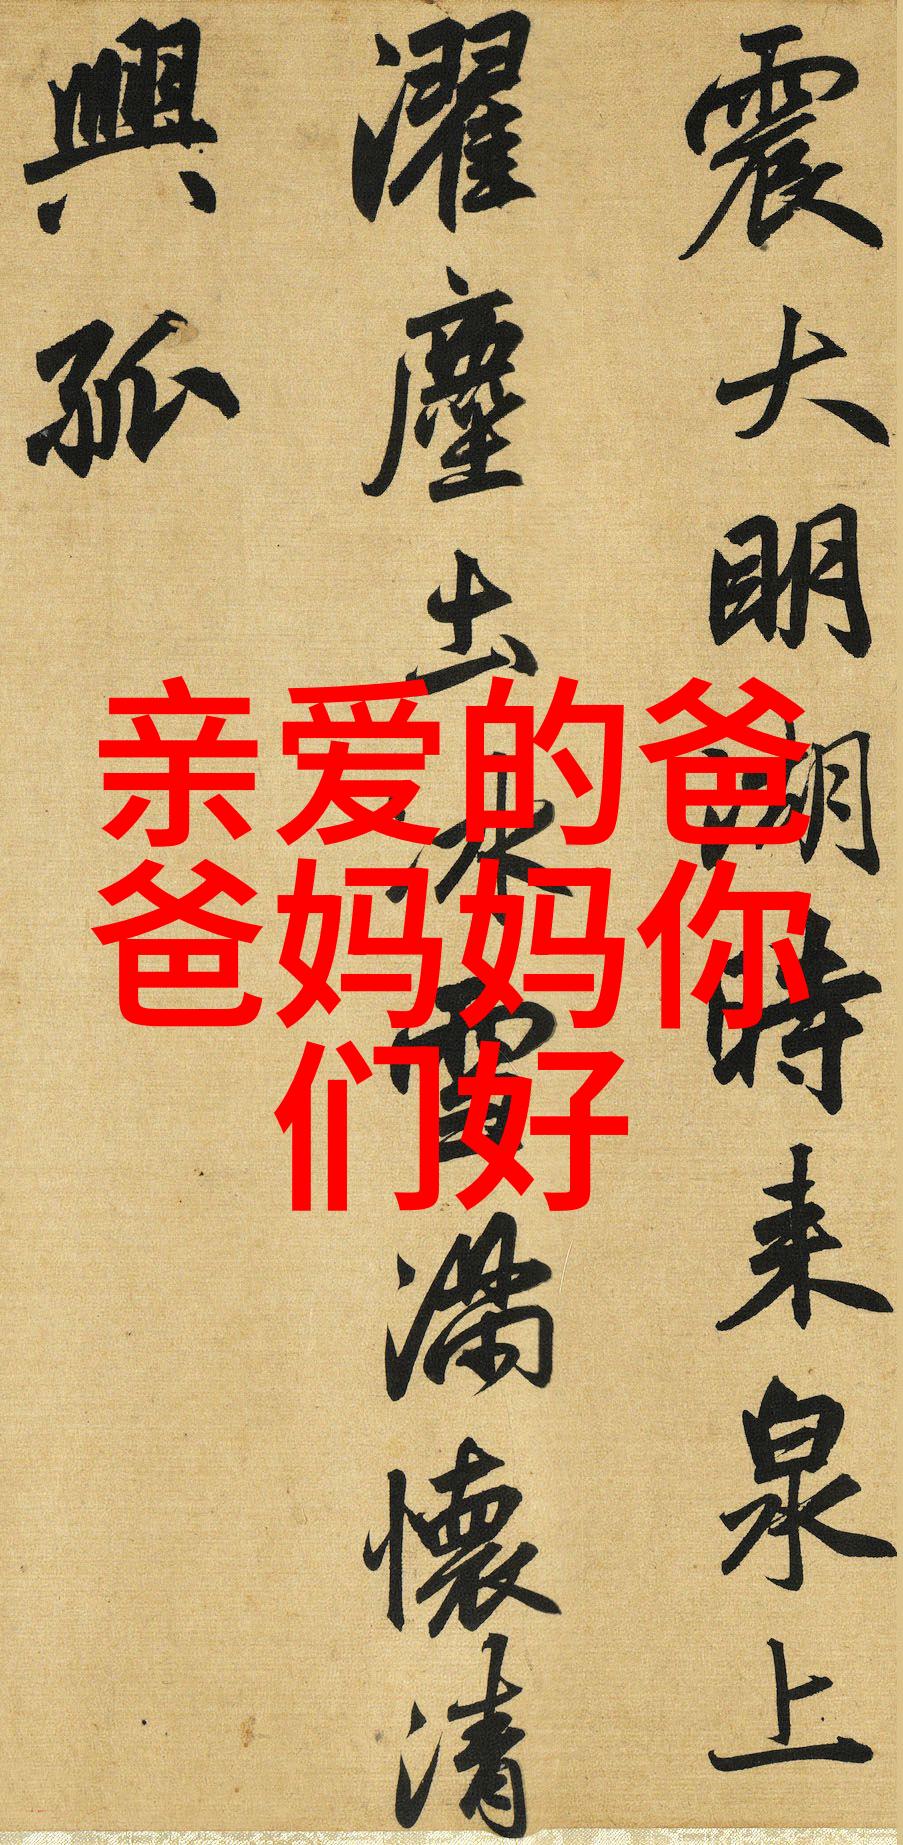 震大明湖時来泉上
濯塵土冰雪滿懷清
興孤
亲爱的爸
爸妈妈你
们好